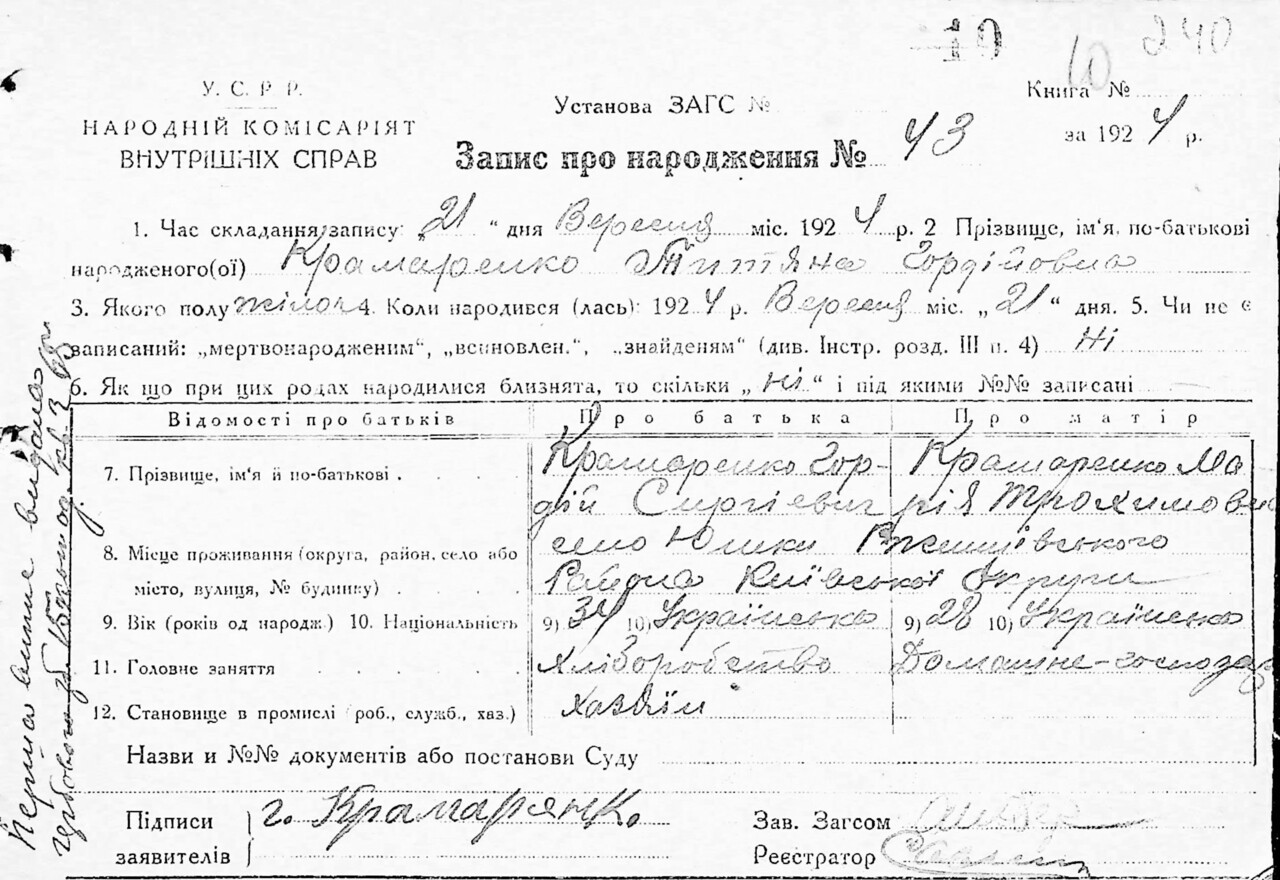 10 240
10
У. С. Р. Р.
НАРОДНІЙ КОМІСАРІЯТ
ВНУТРІШНІХ СПРАВ
Установа ЗАГС №
Книга №
за 1924 р.
Запис про народження № 43
1. Час складання запису: „21“ дня Вересня міс. 1924 р. 2 Прізвище, ім'я, по-батькові
народженого(ої) Крамаренко Титяна Гордійовна
3. Якого полу жіноч 4. Коли народився (лась): 1924 р. Вересня міс. „21“ дня. 5. Чи не є
записаний: „мертвонародженим“, „всиновлен.“, „знайденям“ (див. Інстр. розд. III п. 4) Ні
6. Як що при цих родах народилися близнята, то скільки „Ні“ і під якими №№ записані —
Відомості про батьків Про батька Про матір
7. Прізвище, ім'я й по-батькові . . Крамаренко Гор- Крамаренко Ма
дій Сиргієвич рія Трохимовна
8. Місце проживання (округа, район, село або село Юшки Ржищівського
місто, вулиця, № будинку) . . . . Района Київської Округи
9. Вік (років од народж.) 10. Національність 9) 34 10) Українська 9) 28 10) Українська
11. Головне заняття . . . . . Хліборобство Домашне-господар
12. Становище в промислі (роб., служб., хаз.) хазяїн
Назви и №№ документів або постанови Суду
Підписи г. Крамарянк.
заявителів
Зав. Загсом
Реєстратор
Перша витяг видана